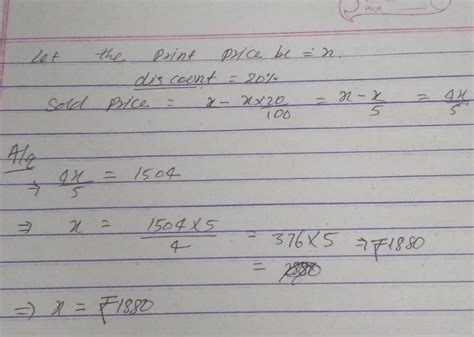 Let the print price be = x.
discount = 20%
Sold price = x - x×20/100 = x - x/5 = 4x/5
A/q
⇒ 4x/5 = 1504
⇒ x = 1504×5/4 = 376×5 ⇒ ₹1880
=
⇒ x = ₹1880